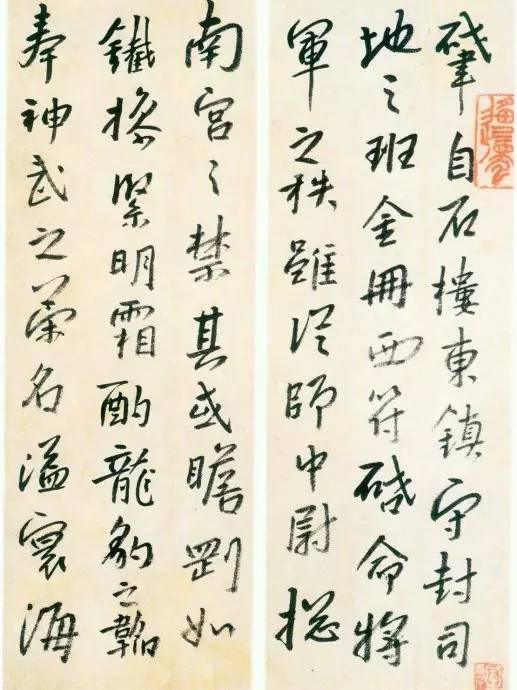 肇自石樓東鎮守封司
地之班金冊西符啓命將
軍之秩雖從師中尉摠
南宮之禁其或膽剛如
鐵操緊明霜酌龍豹之韜
奉神武之榮名溢寰海